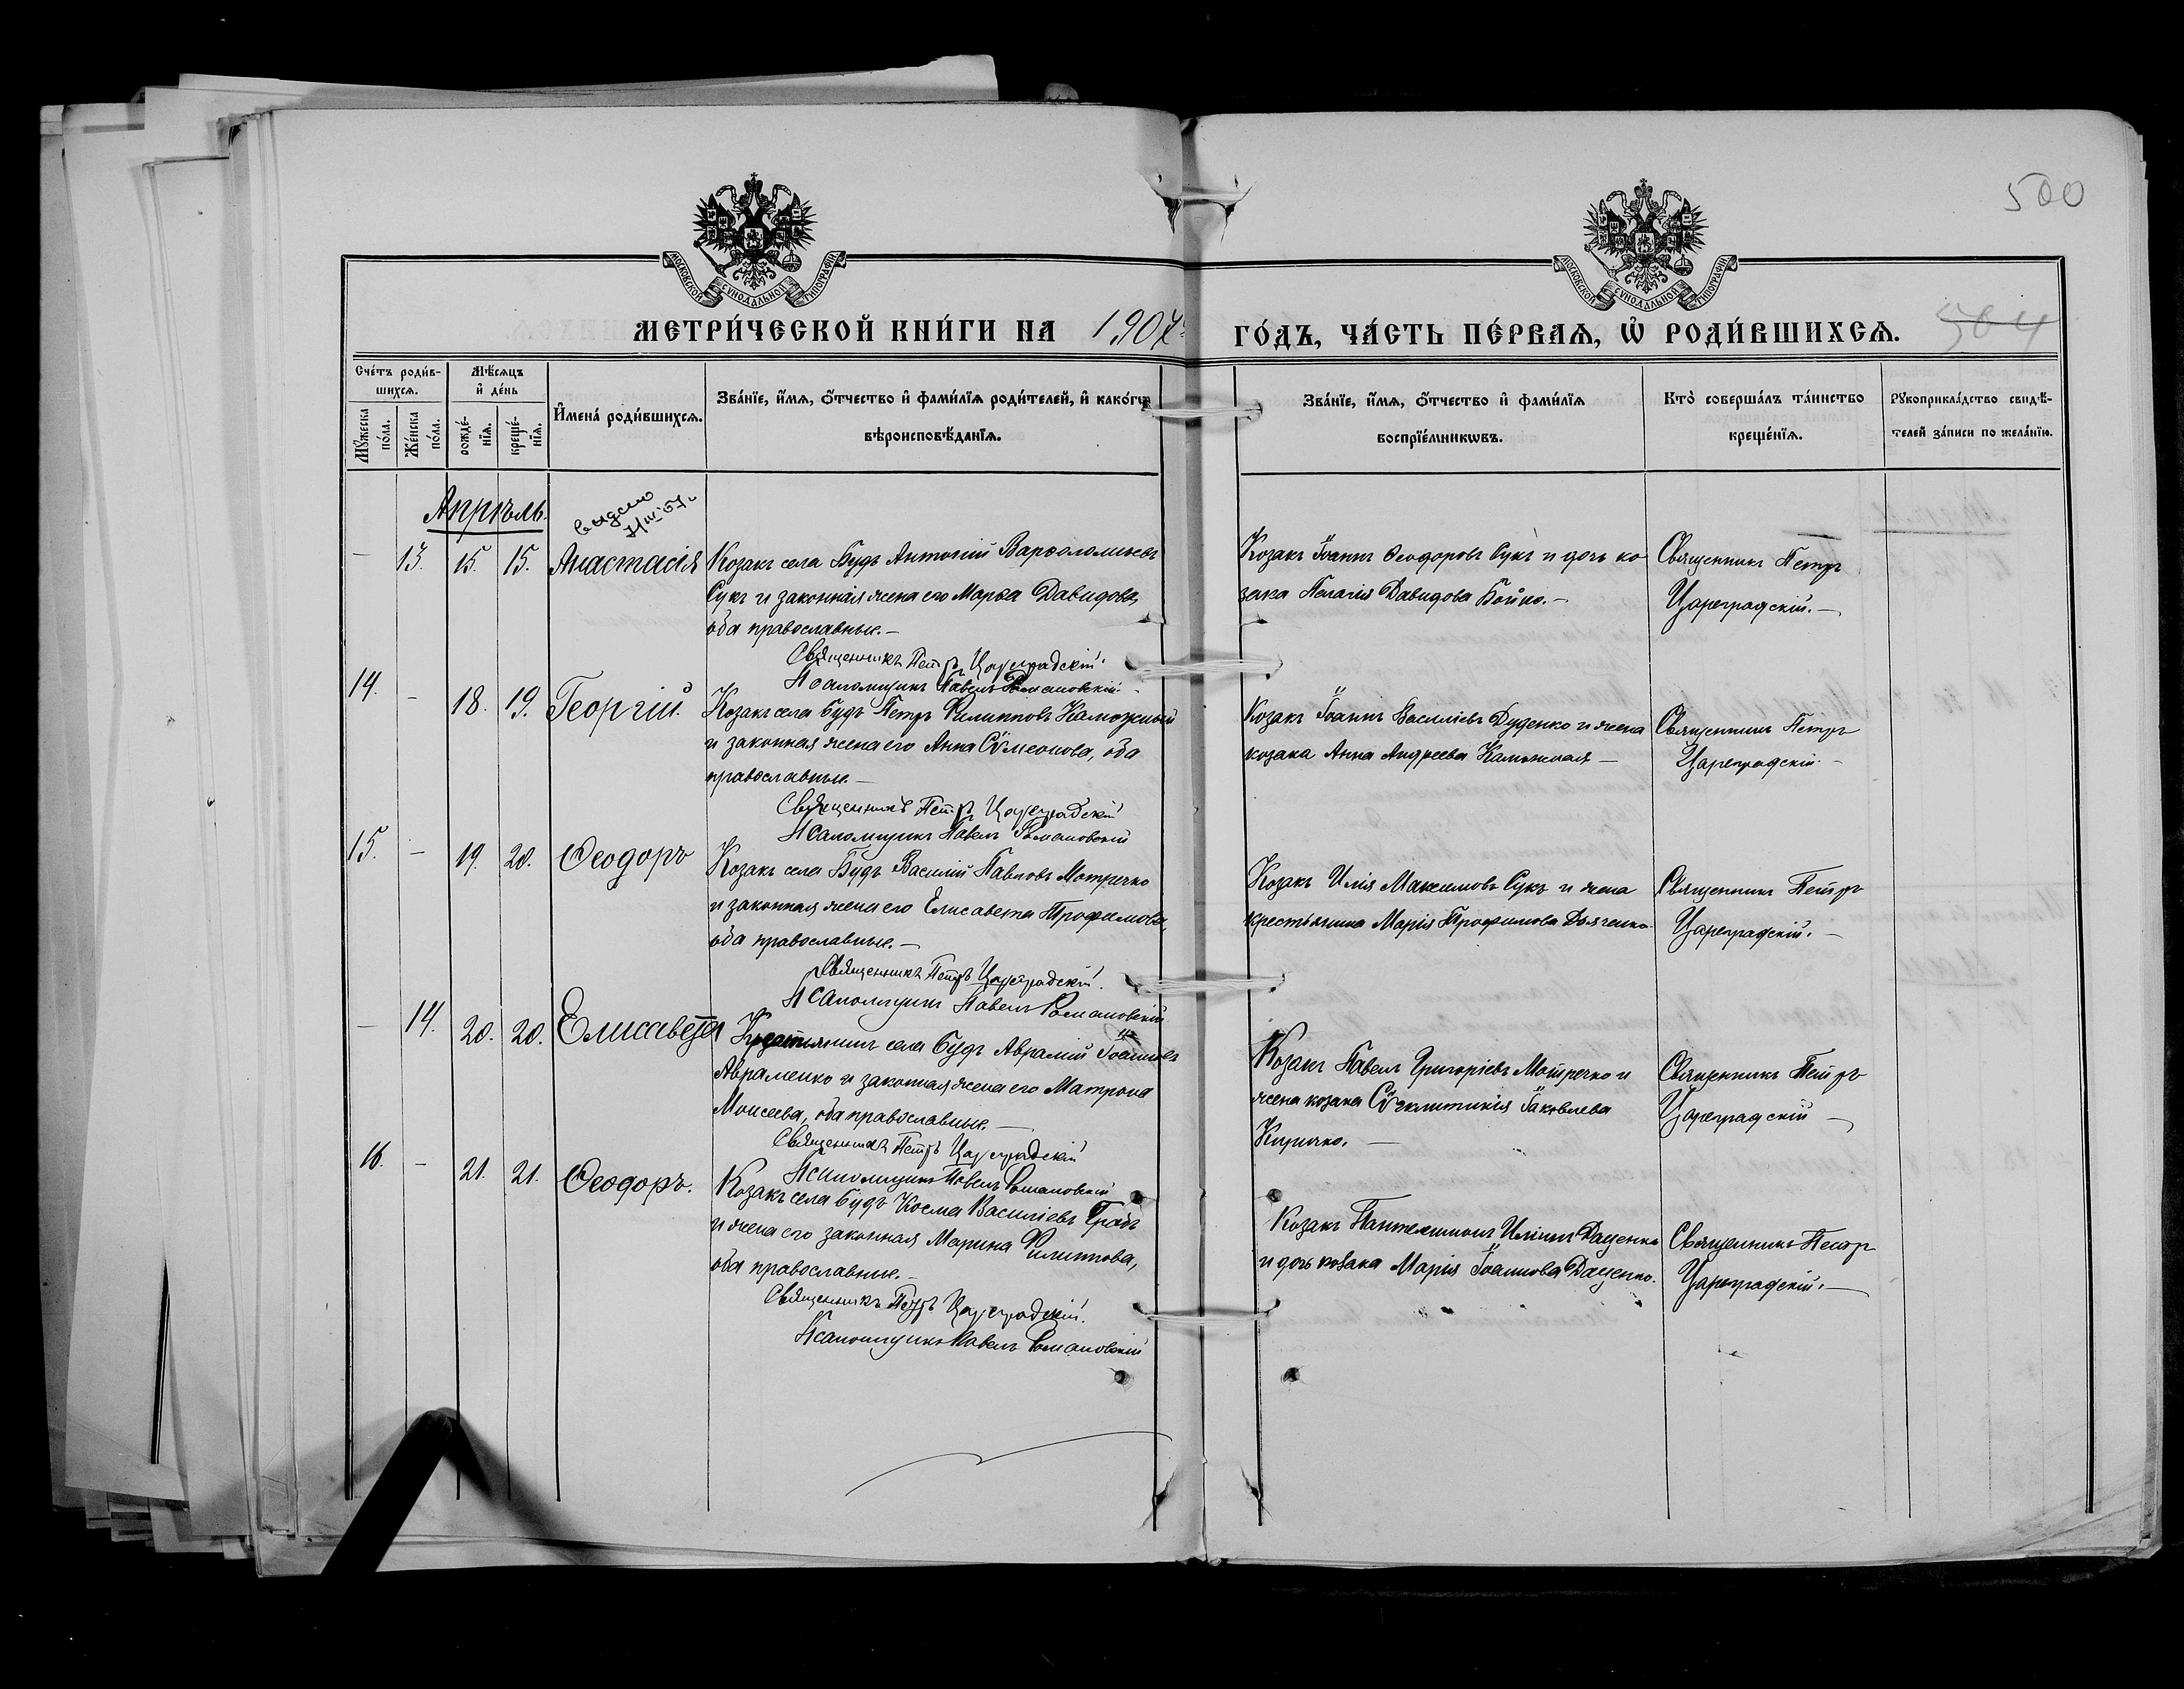 500
МОСКОВСКОЙ СѴНОДАЛЬНОЙ ТИПОГРАФІИ
МОСКОВСКОЙ СѴНОДАЛЬНОЙ ТИПОГРАФІИ
МЕТРИ́ЧЕСКОЙ КНИ́ГИ НА 1907
ГО́ДЪ, ЧА́СТЬ ПЕ́РВАѦ, Ѡ҆ РОДИ́ВШИХСѦ.
504
Сче́тъ роди́в-
шихсѧ.
Мѣ́сѧцъ
и҆ де́нь
Мꙋ́жеска
по́ла.
Же́нска
по́ла.
рожде́-
нїѧ.
креще́-
нїѧ.
И҆мена̀ роди́вшихсѧ.
Зва́нїе, и҆́мѧ, ѻ҆́тчество и҆ фами́лїѧ роди́телей, и҆ како́гѡ
вѣроисповѣ́данїѧ.
Зва́нїе, и҆́мѧ, ѻ҆́тчество и҆ фами́лїѧ
воспрїе́мникѡвъ.
Кто̀ соверша́лъ та́инство
креще́нїѧ.
Рꙋкоприкла́дство свидѣ́-
телей за́писи по жела́нїю.
Апрѣль.
— 13. 15. 15. Анастасія
Козакъ села Будъ Антоній Варѳоломіевъ
Сукъ и законная жена его Марѳа Давидова,
оба православные.—
Священникъ Петръ Цареградскій.
Псаломщикъ Павелъ Романовскій
Козакъ Іоаннъ Ѳеодоровъ Сукъ и дочь ко
зака Пелагія Давидова Бойко.—
Священникъ Петръ
Цареградскій.—
14. — 18. 19. Георгій.
Козакъ села Будъ Петръ Филипповъ Калюжный
и законная жена его Анна Сѵмеонова, оба
православные.—
Священникъ Петръ Цареградскій
Псаломщикъ Павелъ Романовскій
Козакъ Іоаннъ Василіевъ Дуденко и жена
козака Анна Андреева Калюжная —
Священникъ Петръ
Цареградскій —
15. — 19. 20. Ѳеодоръ
Козакъ села Будъ Василій Павловъ Мотречко
и законная жена его Елисавета Трофимова,
оба православные.—
Священникъ Петръ Цареградскій.
Псаломщикъ Павелъ Романовскій
Козакъ Илія Максимовъ Сукъ и жена
крестьянина Марія Трофимова Дьяченко.
Священникъ Петръ
Цареградскій. —
— 14. 20. 20. Елисавета
Крестьянинъ села Будъ Аврамій Іоанновъ
Авраменко и законная жена его Матрона
Моисеева, оба православные. —
Священникъ Петръ Цареградскій
Псаломщикъ Павелъ Романовскій
Козакъ Павелъ Григоріевъ Мотречко и
жена козака Сѵнклитикія Іаковлева
Киричко. —
Священникъ Петръ
Цареградскій —
16. — 21. 21. Ѳеодоръ.
Козакъ села Будъ Косма Василіевъ Грабъ
и жена его законная Марина Филиппова,
оба православные.—
Священникъ Петръ Цареградскій.
Псаломщикъ Павелъ Романовскій
Козакъ Пантелимонъ Иліинъ Даценко
и дочь козака Марія Іоаннова Даценко.
Священникъ Петр
Цареградскій.—